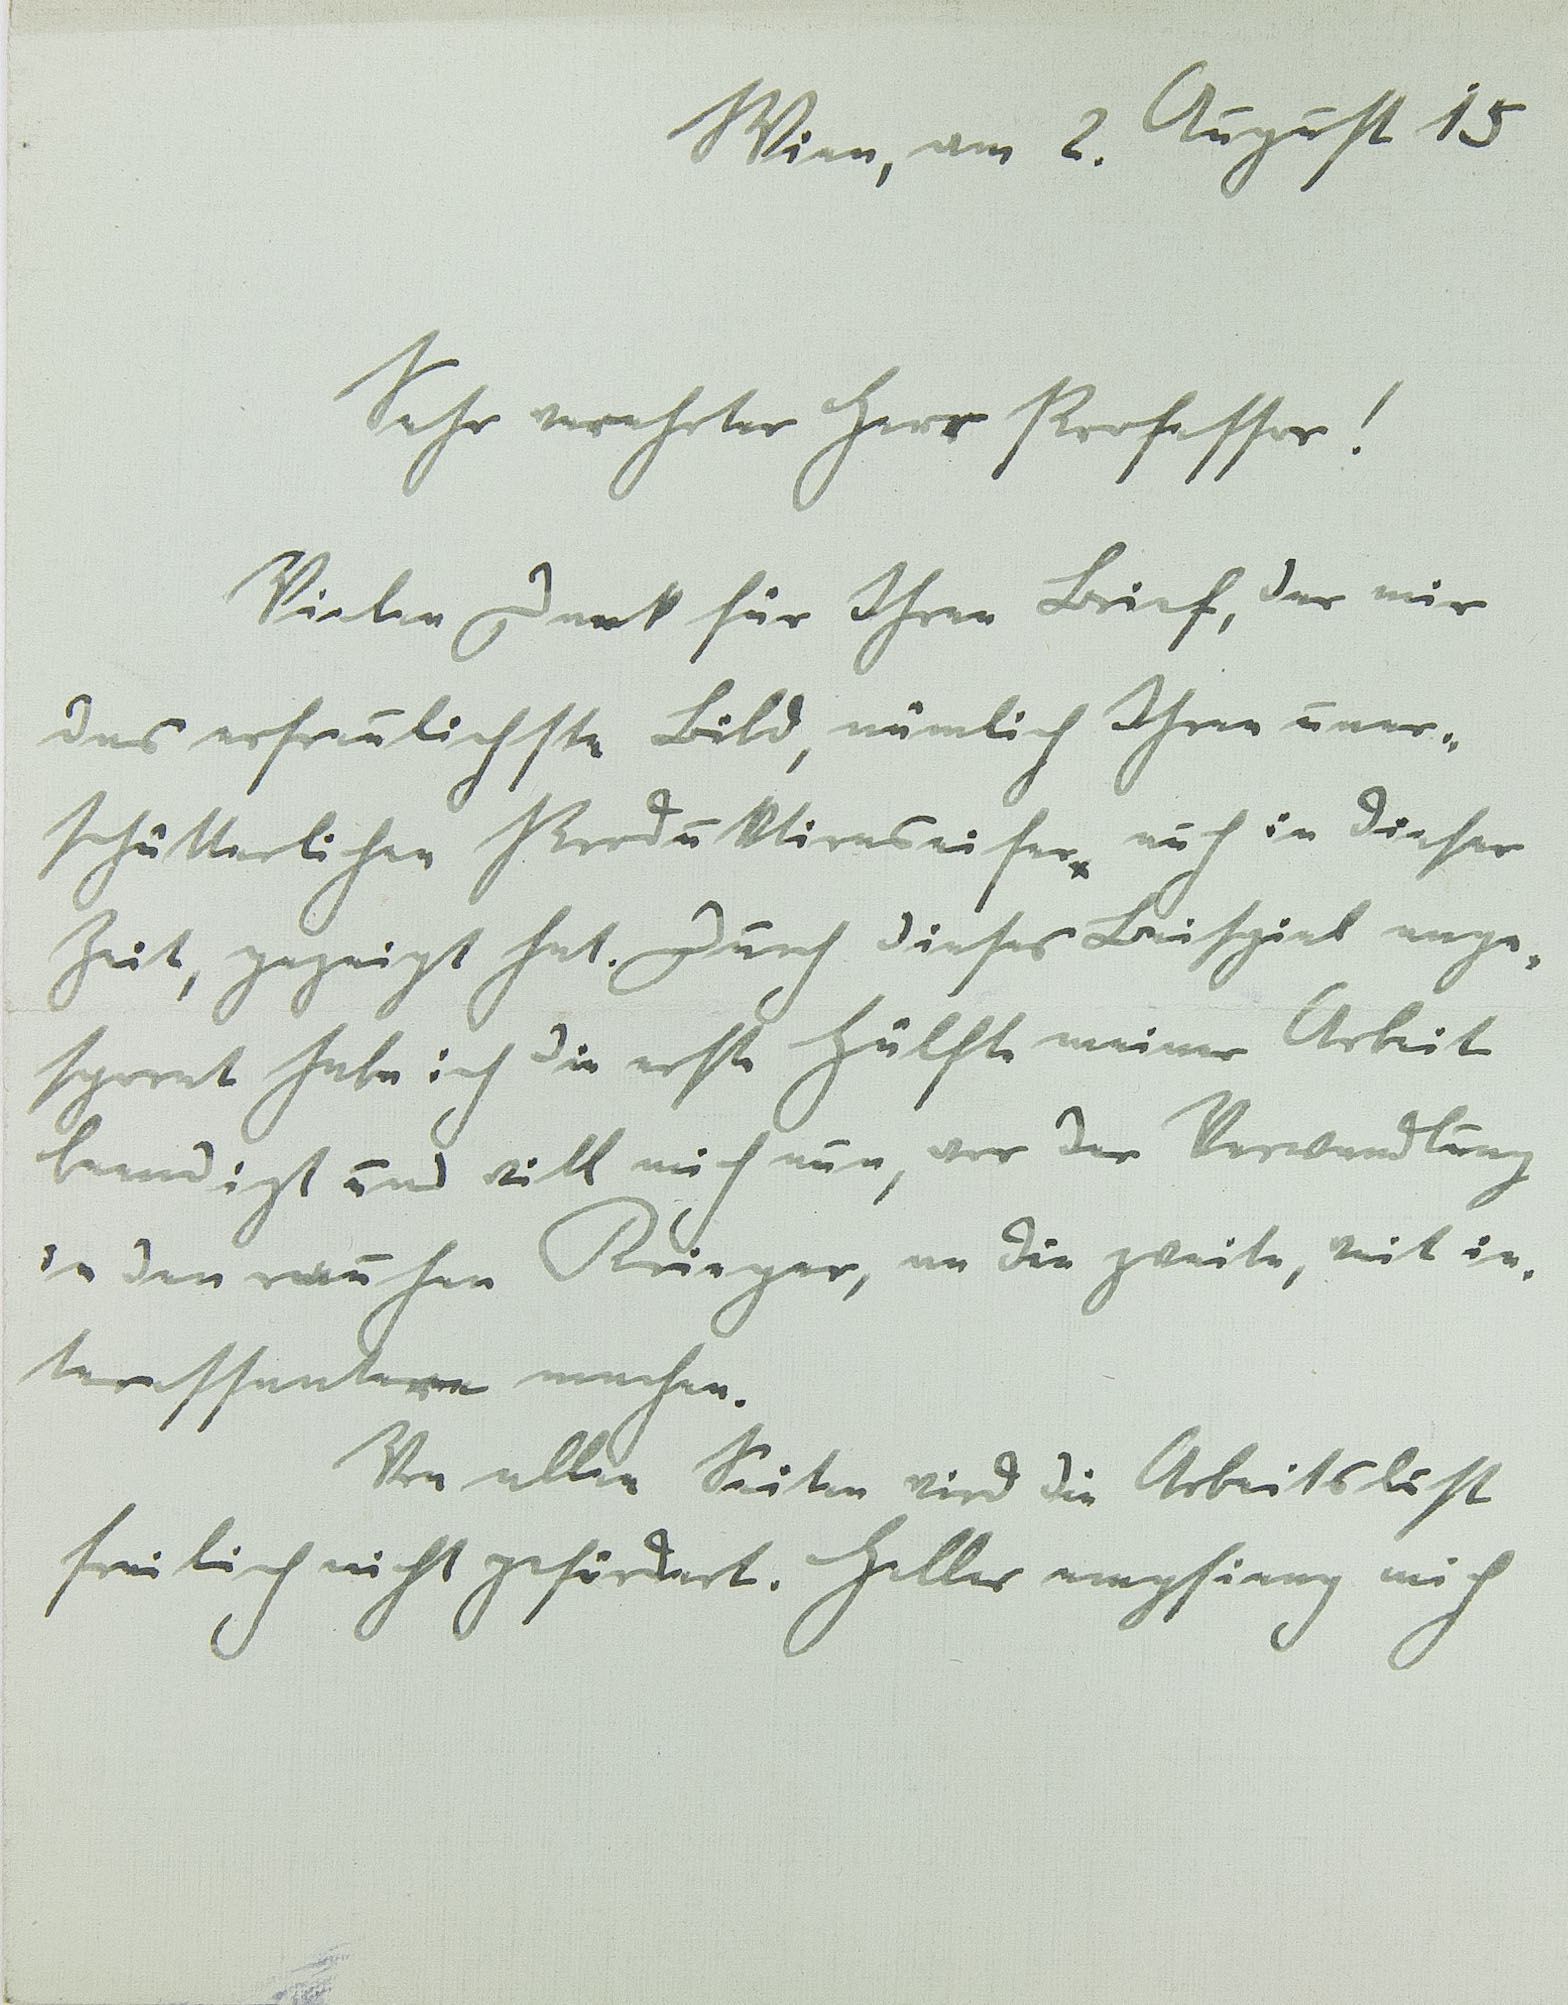 Wien, am 2. August 15
Sehr verehrter Herr Professor!
Vielen Dank für Ihren Brief, der mir
das erfreulichste Bild, nämlich Ihren uner-
schütterlichen Produktionseifer auch in dieser
Zeit, gezeigt hat. Durch dieses Beispiel ange-
spornt habe ich die erste Hälfte meiner Arbeit
beendigt und will mich nun, vor der Verwandlung
in den rauhen Krieger, an die zweite, weit in-
teressantere machen.
Von allen Seiten wird die Arbeitslust
freilich nicht gefördert. Heller empfieng mich